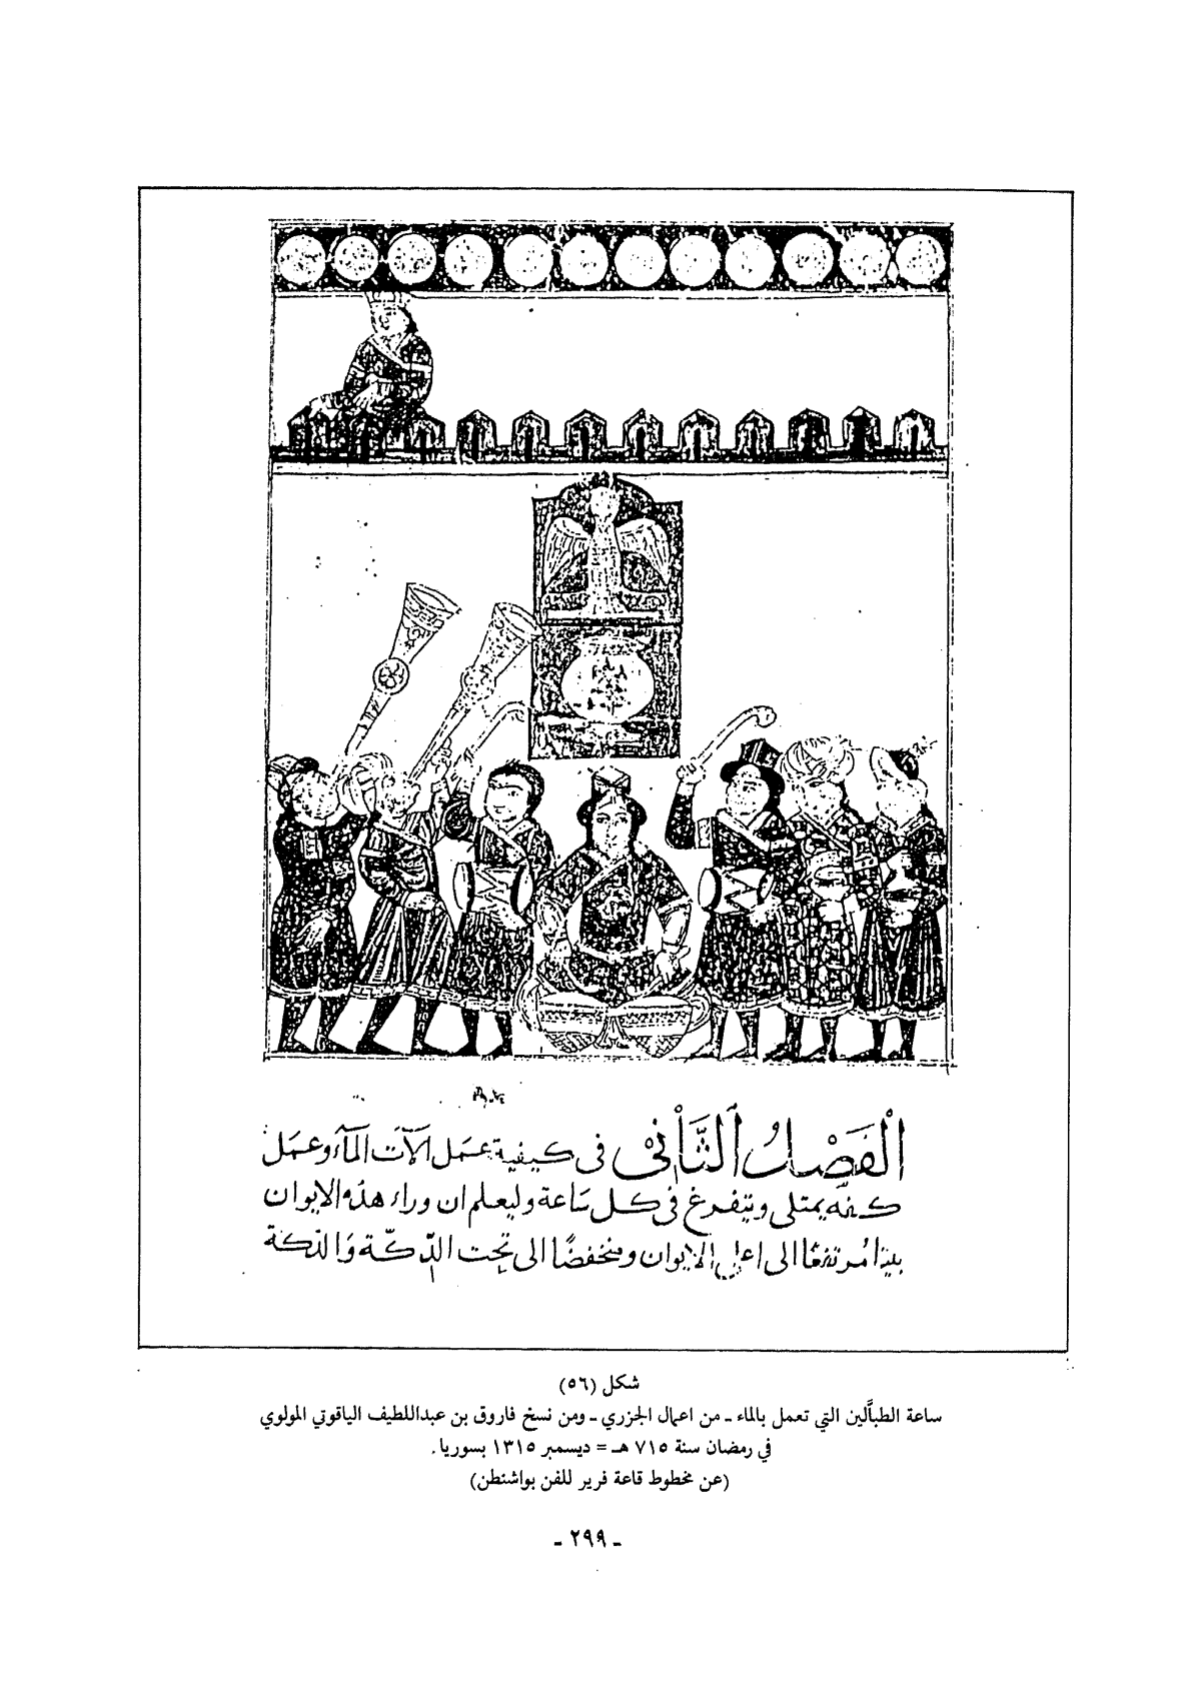 الْفَصْلُ الثَّانِيْ في كيفية عمَل آلآت المآء وعمَل
كفه يمتلي ويتفرغ في كل سَاعة وليعلم ان وراء هذه الايوان
بيتا مُرتفعًا الى اعلى الايوان ومنخفضًا الى تحت الدّكّة وَالدكة
شكل (٥٦)
ساعة الطبَّالين التي تعمل بالماء ـ من اعمال الجزري ـ ومن نسخ فاروق بن عبداللطيف الياقوتي المولوي
في رمضان سنة ٧١٥ هـ = ديسمبر ١٣١٥ بسوريا.
(عن مخطوط قاعة فرير للفن بواشنطن)
ـ ٢٩٩ ـ